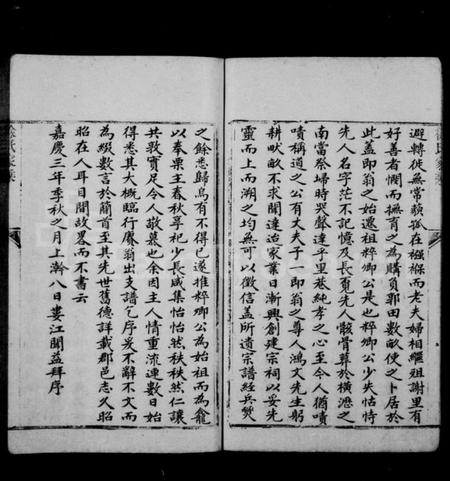 避轉徙無常顛孤在襁褓而老夫婦相繼殂謝里有
好善者憫而撫育之為購負郭田數畝使之卜居於
此蓋即翁之始遷祖粹卿公是也粹卿公少失怙恃
先人名字茫不記憶及長覓先人骸骨葬於橫瀝之
南當祭埽時哭聲達乎里巷純孝之心至今人猶嘖
嘖稱道之公有丈夫子一即翁之尊人鴻文先生躬
耕畎畝不求聞達治家業日漸興創建宗祠以妥先
靈而上而溯之均無可以徵信蓋所遺宗譜經兵燹
之餘悉歸烏有不得已遂推粹卿公為始祖而為龕
以奉栗主春秋享祀少長咸集怡怡然秩秩然仁讓
共敦實足令人敬慕也余因主人情重流連數日始
得悉其大概臨行賡翁出支譜乞序爰不辭不文而
為綴數言於簡首至其先世舊德詳載郡邑志久昭
昭在人耳目間故畧而不書云
嘉慶三年季秋之月上澣八日婁江聞益拜序